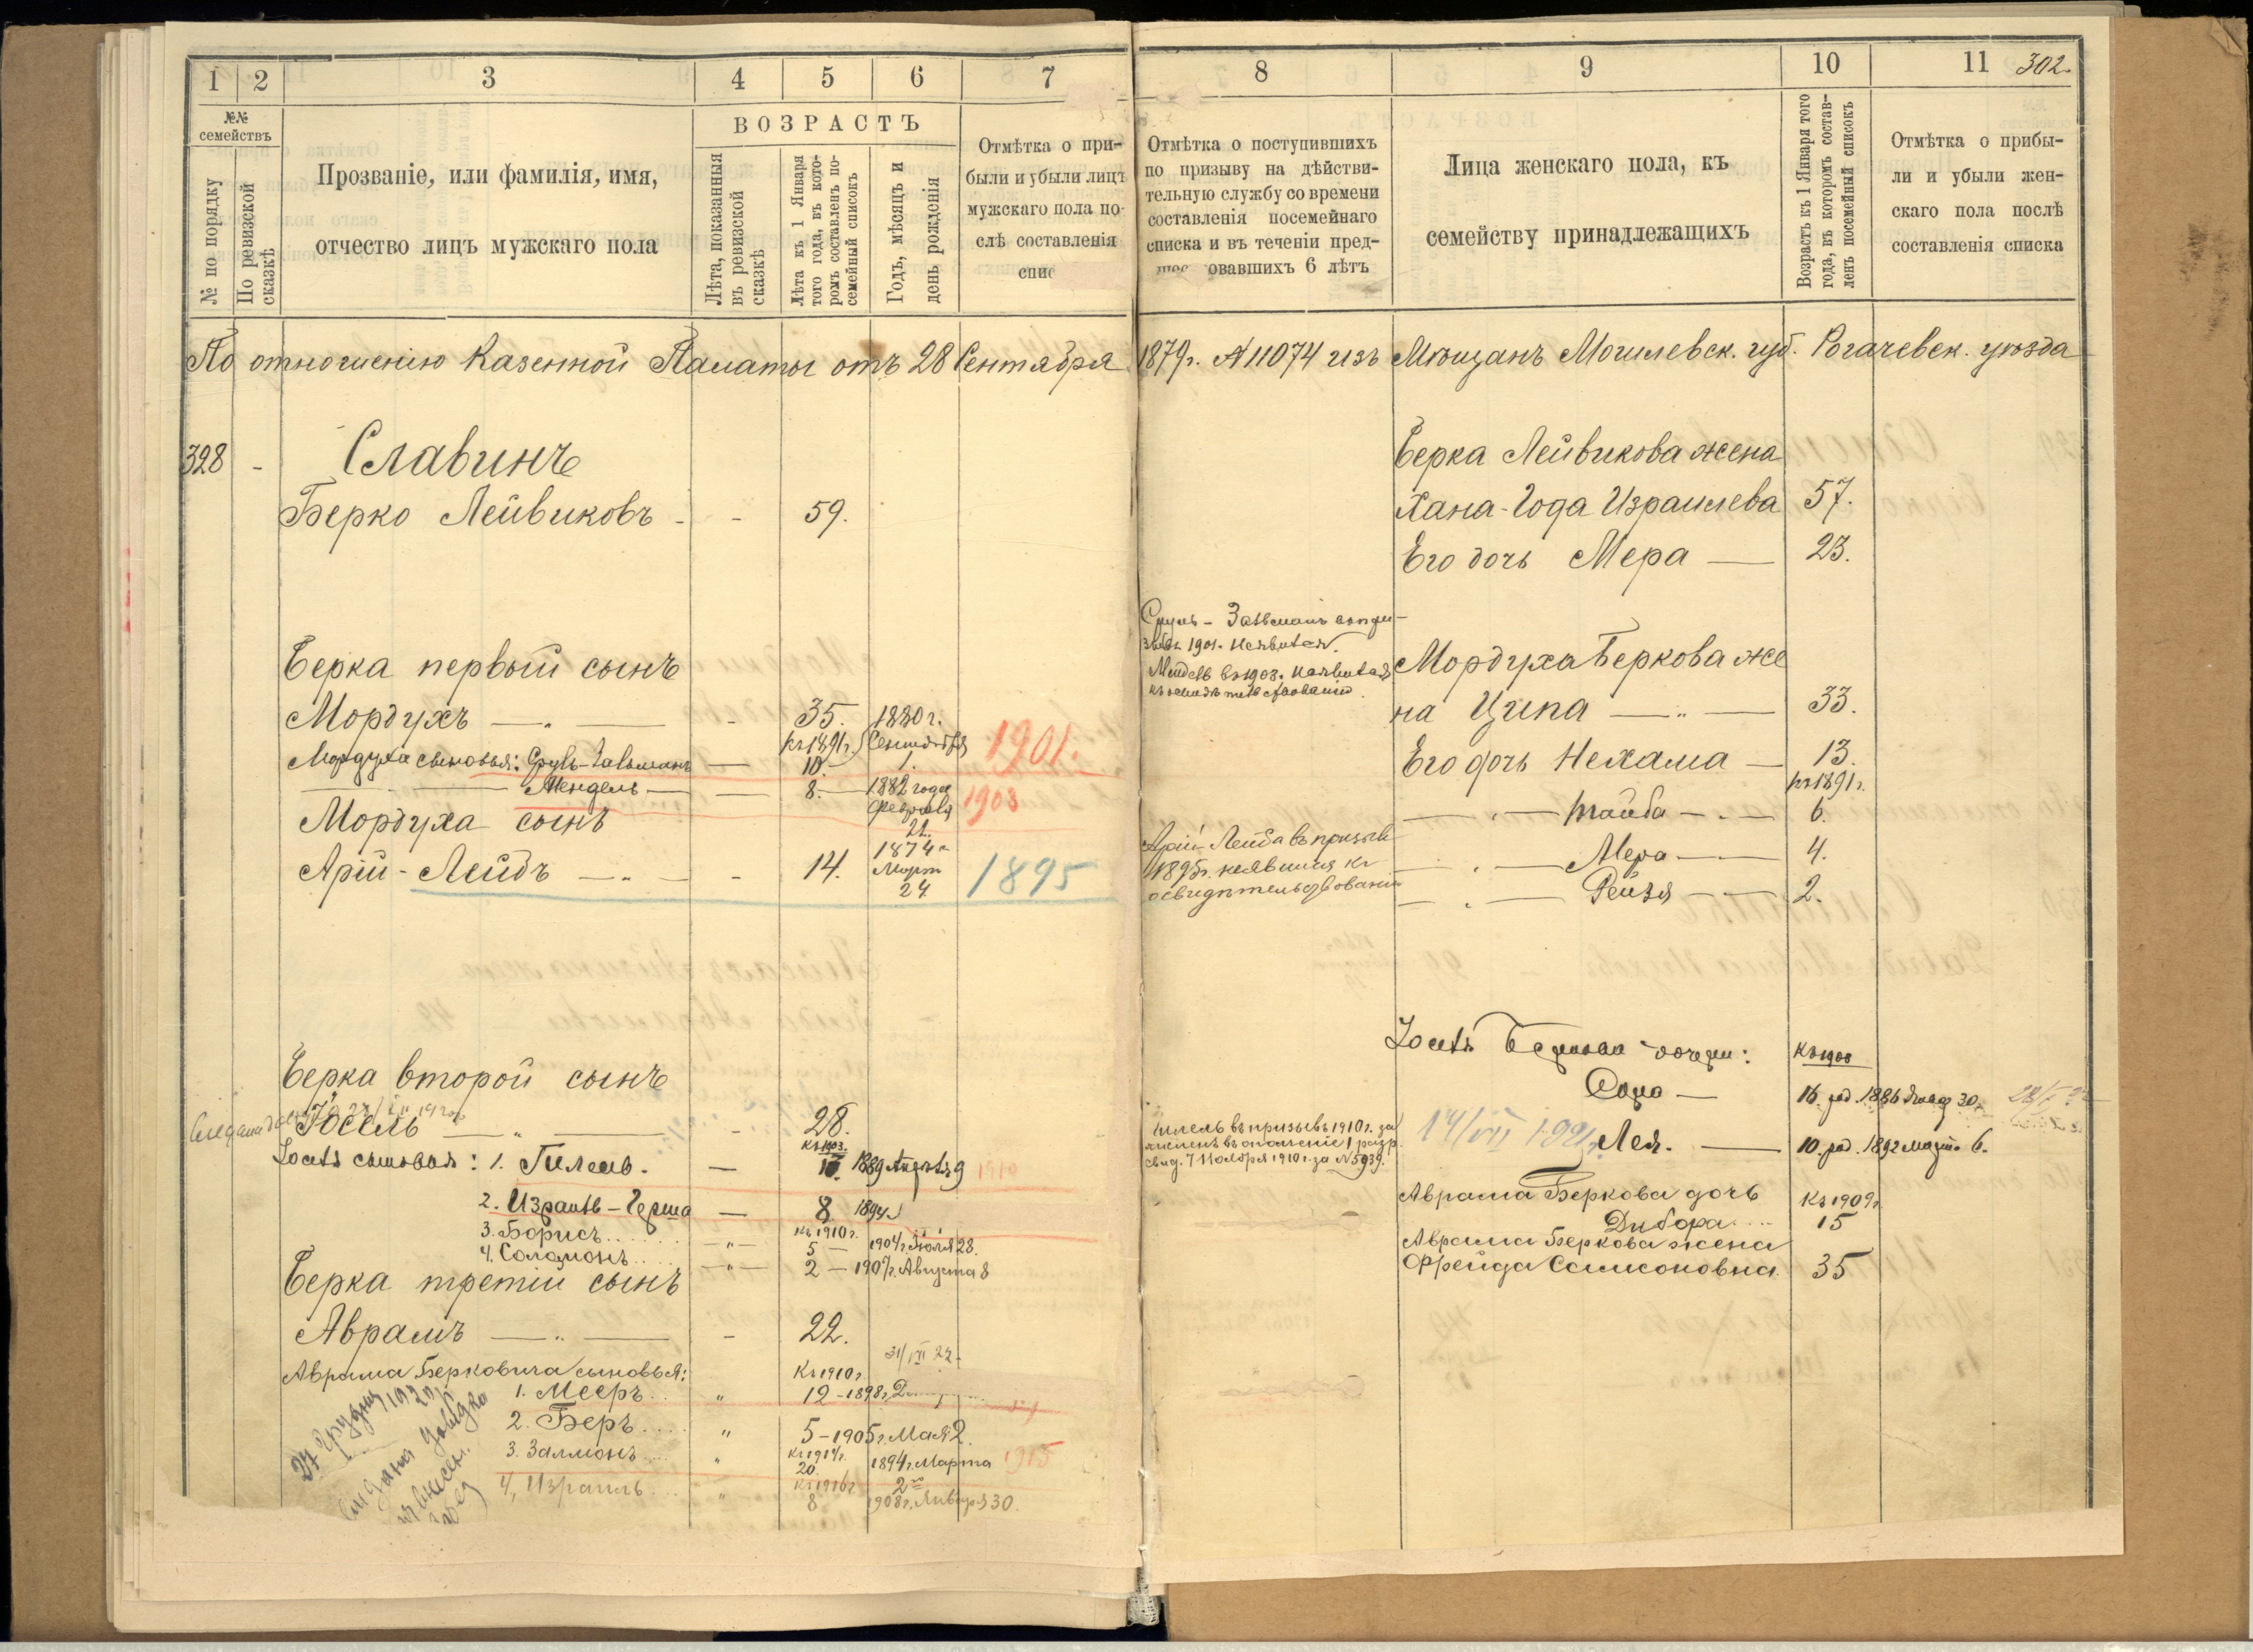 1 2 3 4 5 6 7
№№ семействъ
№ по порядку
По ревизской сказкѣ
Прозваніе, или фамилія, имя,
отчество лицъ мужскаго пола
ВОЗРАСТЪ
Лѣта, показанныя
въ ревизской
сказкѣ
Лѣта къ 1 Января
того года, въ кото-
ромъ составленъ по-
семейный списокъ
Годъ, мѣсяцъ и
день рожденія
Отмѣтка о при-
были и убыли лицъ
мужскаго пола по-
слѣ составленія
спис
8 9 10 11 302.
Отмѣтка о поступившихъ
по призыву на дѣйстви-
тельную службу со времени
составленія посемейнаго
списка и въ теченіи пред-
овавшихъ 6 лѣтъ
Лица женскаго пола, къ
семейству принадлежащихъ
Возрастъ къ 1 Января того
года, въ которомъ состав-
ленъ посемейный списокъ
Отмѣтка о прибы-
ли и убыли жен-
скаго пола послѣ
составленія списка
По отношенію Казенной Палаты отъ 28 Сентября 1879г. № 11074 изъ Мѣщанъ Могилевск. губ. Рогачевск. уѣзда
328 - Славинъ
Берко Лейвиковъ - - 59.
Берка первый сынъ
Мордухъ — „ — - 35. 1880 г.
къ 1891 г. Сентября
Мордуха сыновья: Сруль-Залманъ — 10. 1. 1901.
Мендель — — 8. — 1882 года 1903
Февраля
Мордуха сынъ 21.
1874 г.
Арій-Лейбъ — „ — - 14. Март 1895
24
Берка второй сынъ
Іосель — „ — - 28.
къ 1903.
1. Гилель. — 1889 Августа 9 1910
2. Израиль-Герша — 8 1894
къ 1910 г.
3. Борисъ — „ — 5 — 1904 г. Іюля 28.
4. Соломонъ — „ — 2 — 1907 г. Августа 8
Берка третій сынъ
Аврамъ — „ — - 22.
31/VII 22
Аврама Берковича сыновья: Къ 1910 г.
1. Мееръ „ 12 - 1898 г.
2. Беръ „ 5 - 1905 г. Мая 2.
къ 1914 г.
3. Залмонъ „ 20. 1894 г. Марта 1915
2го
къ 1916 г.
4. Израиль „ 8 1908 г. Января 30.
27 Грудня 1920 р
видана
Берка Лейвикова жена
Хана-Года Израилева 57.
Его дочь Мера — 23.
Сруль-Залманъ
1901. неявился.
Мендель въ 1903. неявился
Мордуха Беркова же
на Ципа — „ — 33.
Его дочь Нехама — 13.
къ 1891 г.
— „ — Тайба — 6.
— „ — Мера — 4.
— „ — Рейзя — 2.
Арій-Лейба въ призыв
1895 г. неявился къ
освидѣтельствованію
Беркова дочери: Къ 1903
Сора — 16. род. 1886 30.
14/VII 1921 Лея. — 10. род. 1892 6.
Гилель въ призывъ 1910 г. за
численъ въ ополченіе 1 разр.
свид. 7 Ноября 1910 г. за № 5939.
Аврама Беркова дочь Къ 1909 г
Двбора 15
Аврама Беркова жена
Фрейда Самсоновна 35